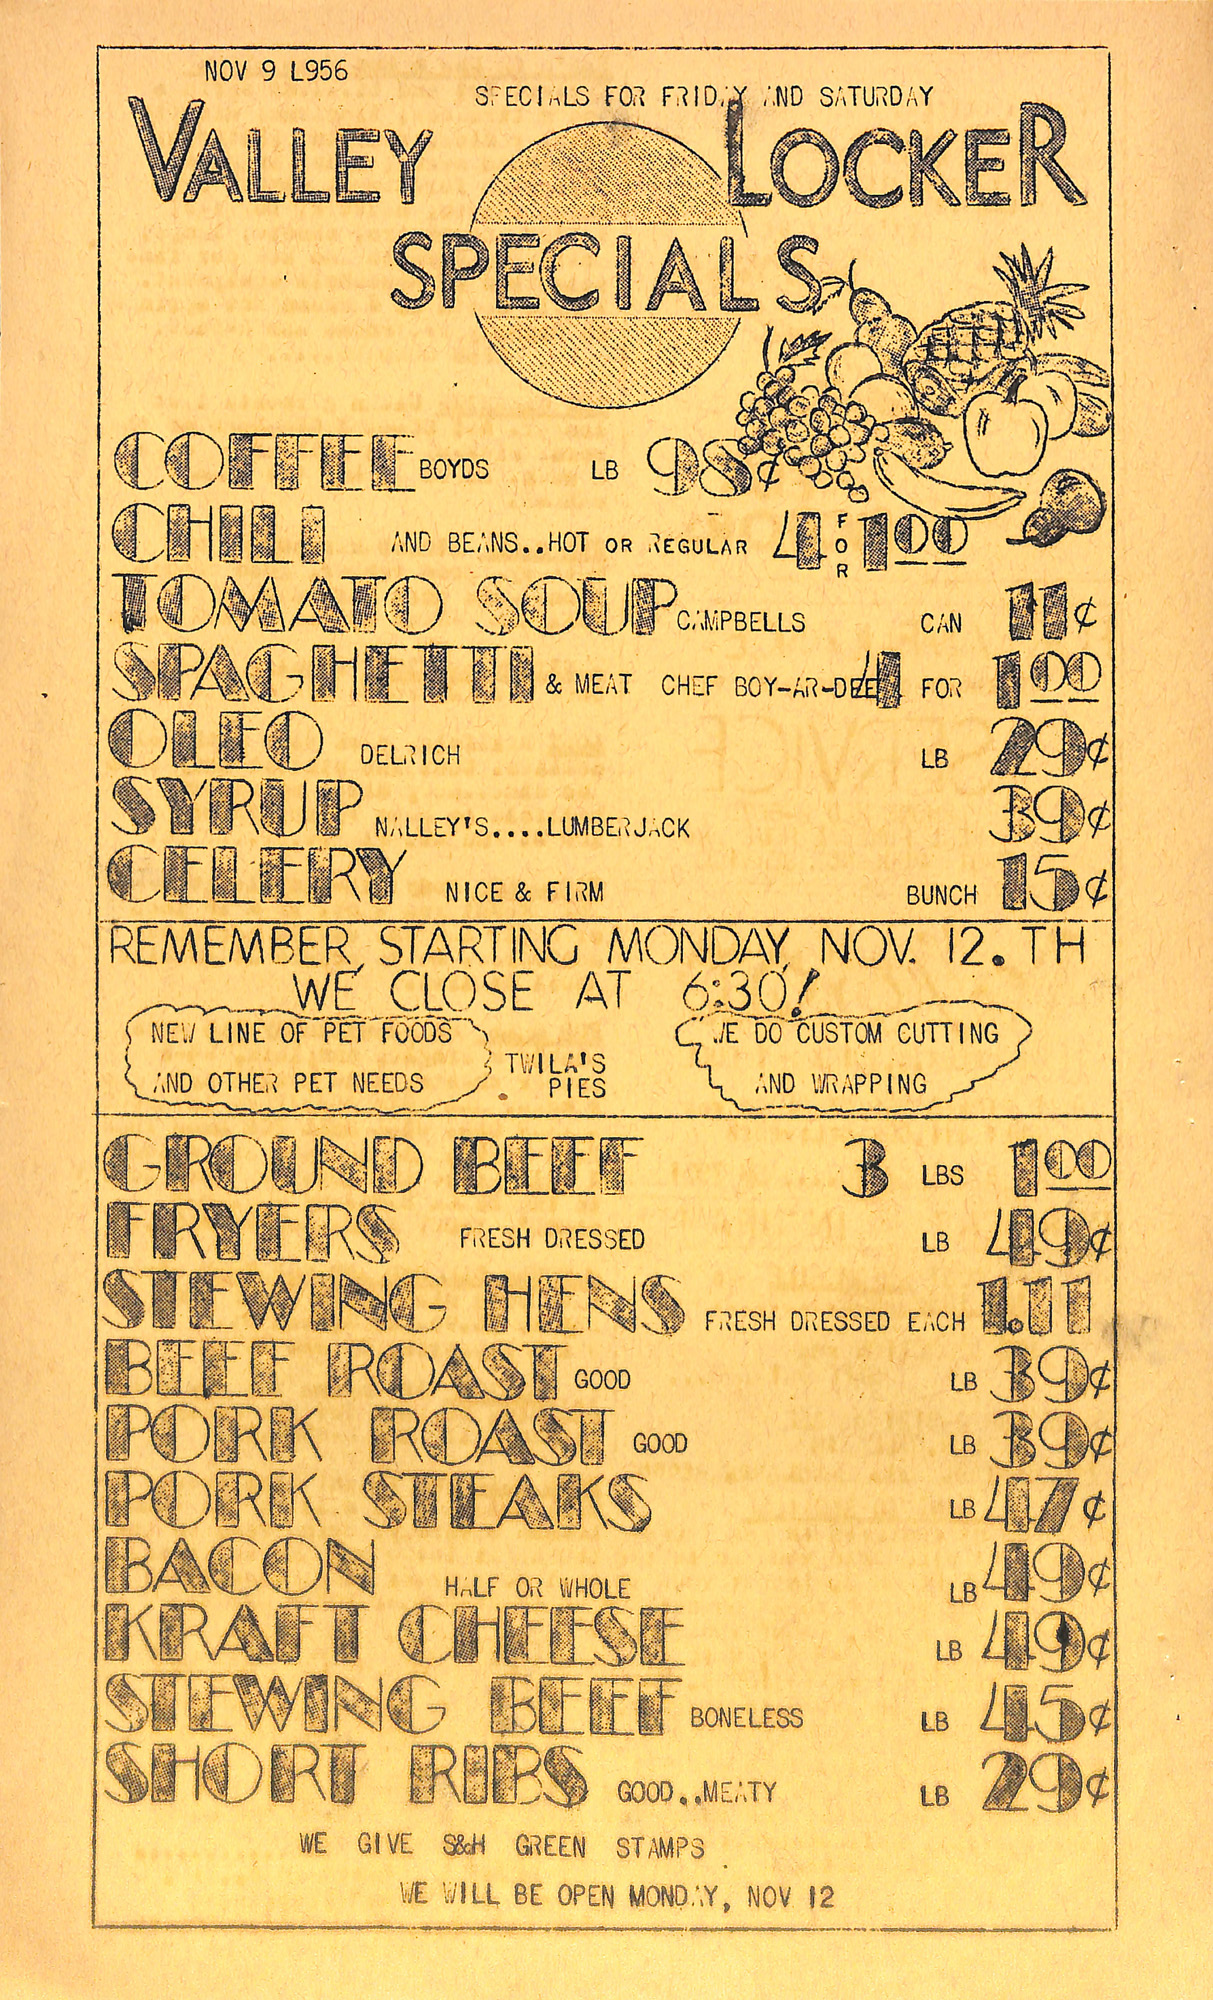 NOV 9 L956
SPECIALS FOR FRIDAY AND SATURDAY
VALLEY LOCKER
SPECIALS
COFFEE BOYDS LB 98¢
CHILI AND BEANS..HOT OR REGULAR 4 FOR 1 00
TOMATO SOUP CAMPBELLS CAN 11¢
SPAGHETTI & MEAT CHEF BOY-AR-DEE 4 FOR 1 00
OLEO DELRICH LB 29¢
SYRUP NALLEY'S....LUMBERJACK 39¢
CELERY NICE & FIRM BUNCH 15¢
REMEMBER, STARTING MONDAY, NOV. 12. TH
WE CLOSE AT 6:30!
NEW LINE OF PET FOODS
AND OTHER PET NEEDS
TWILA'S
PIES
WE DO CUSTOM CUTTING
AND WRAPPING
GROUND BEEF 3 LBS 1 00
FRYERS FRESH DRESSED LB 49¢
STEWING HENS FRESH DRESSED EACH 1.11
BEEF ROAST GOOD LB 39¢
PORK ROAST GOOD LB 39¢
PORK STEAKS LB 47¢
BACON HALF OR WHOLE LB 49¢
KRAFT CHEESE LB 49¢
STEWING BEEF BONELESS LB 45¢
SHORT RIBS GOOD..MEATY LB 29¢
WE GIVE S&H GREEN STAMPS
WE WILL BE OPEN MONDAY, NOV 12